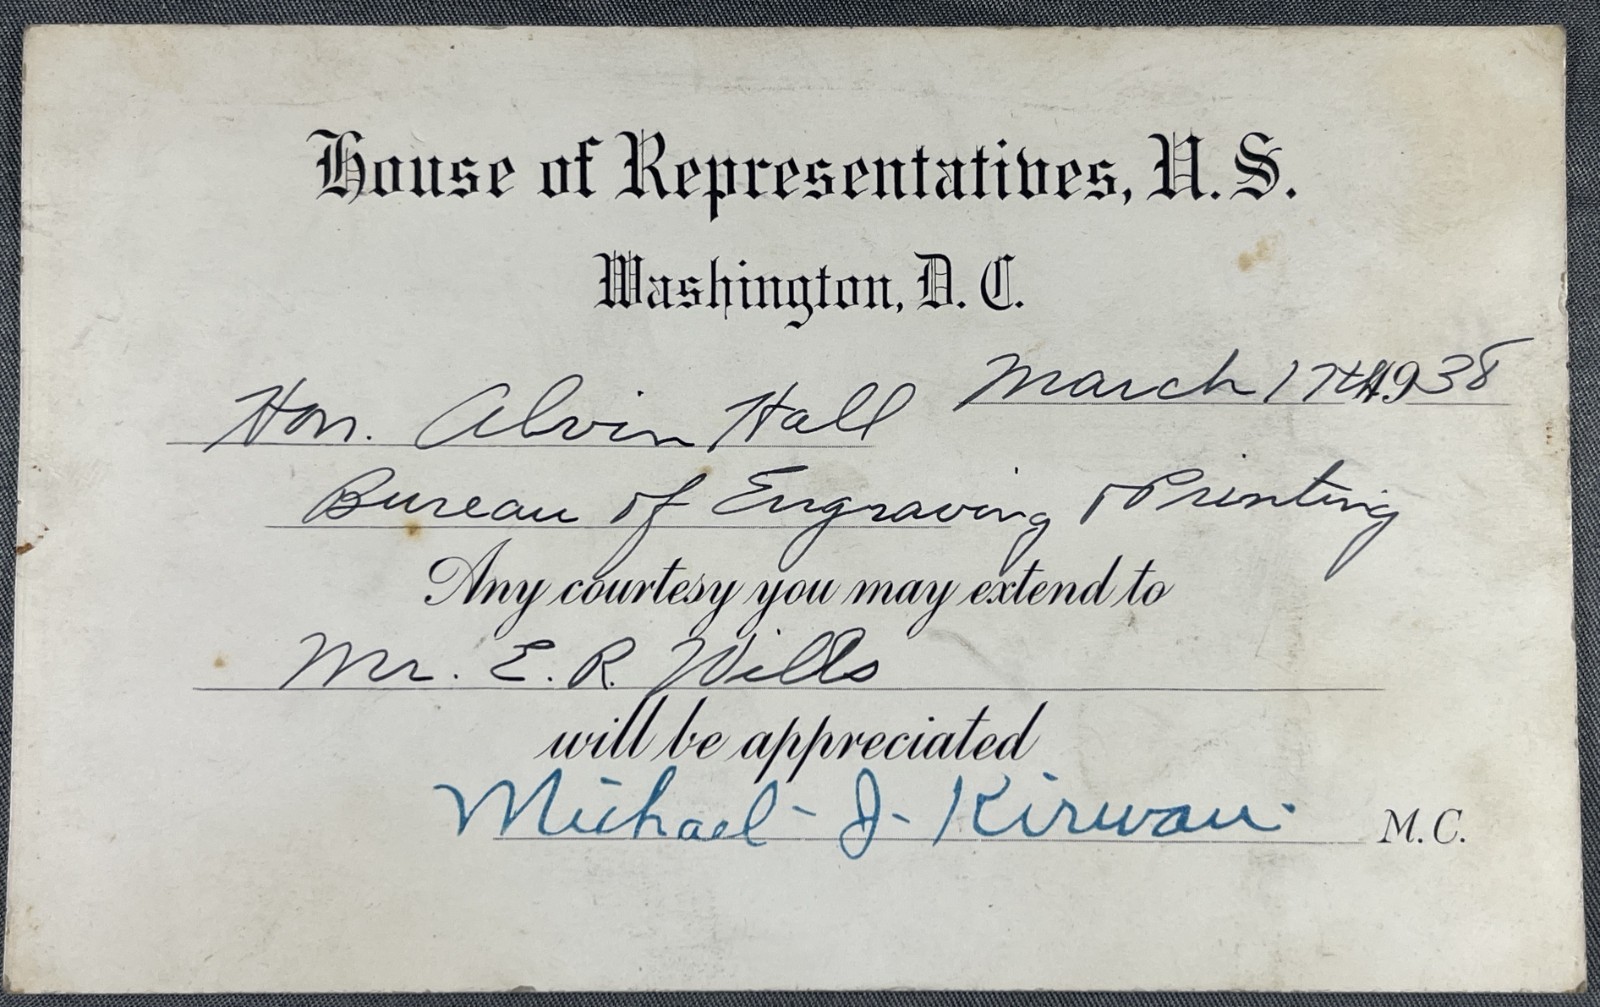 House of Representatives, U.S.
Washington, D.C.
March 17th 1938
Hon. Alvin Hall
Bureau of Engraving & Printing
Any courtesy you may extend to
Mr. E. R. Wills
will be appreciated
Michael J. Kirwan M.C.